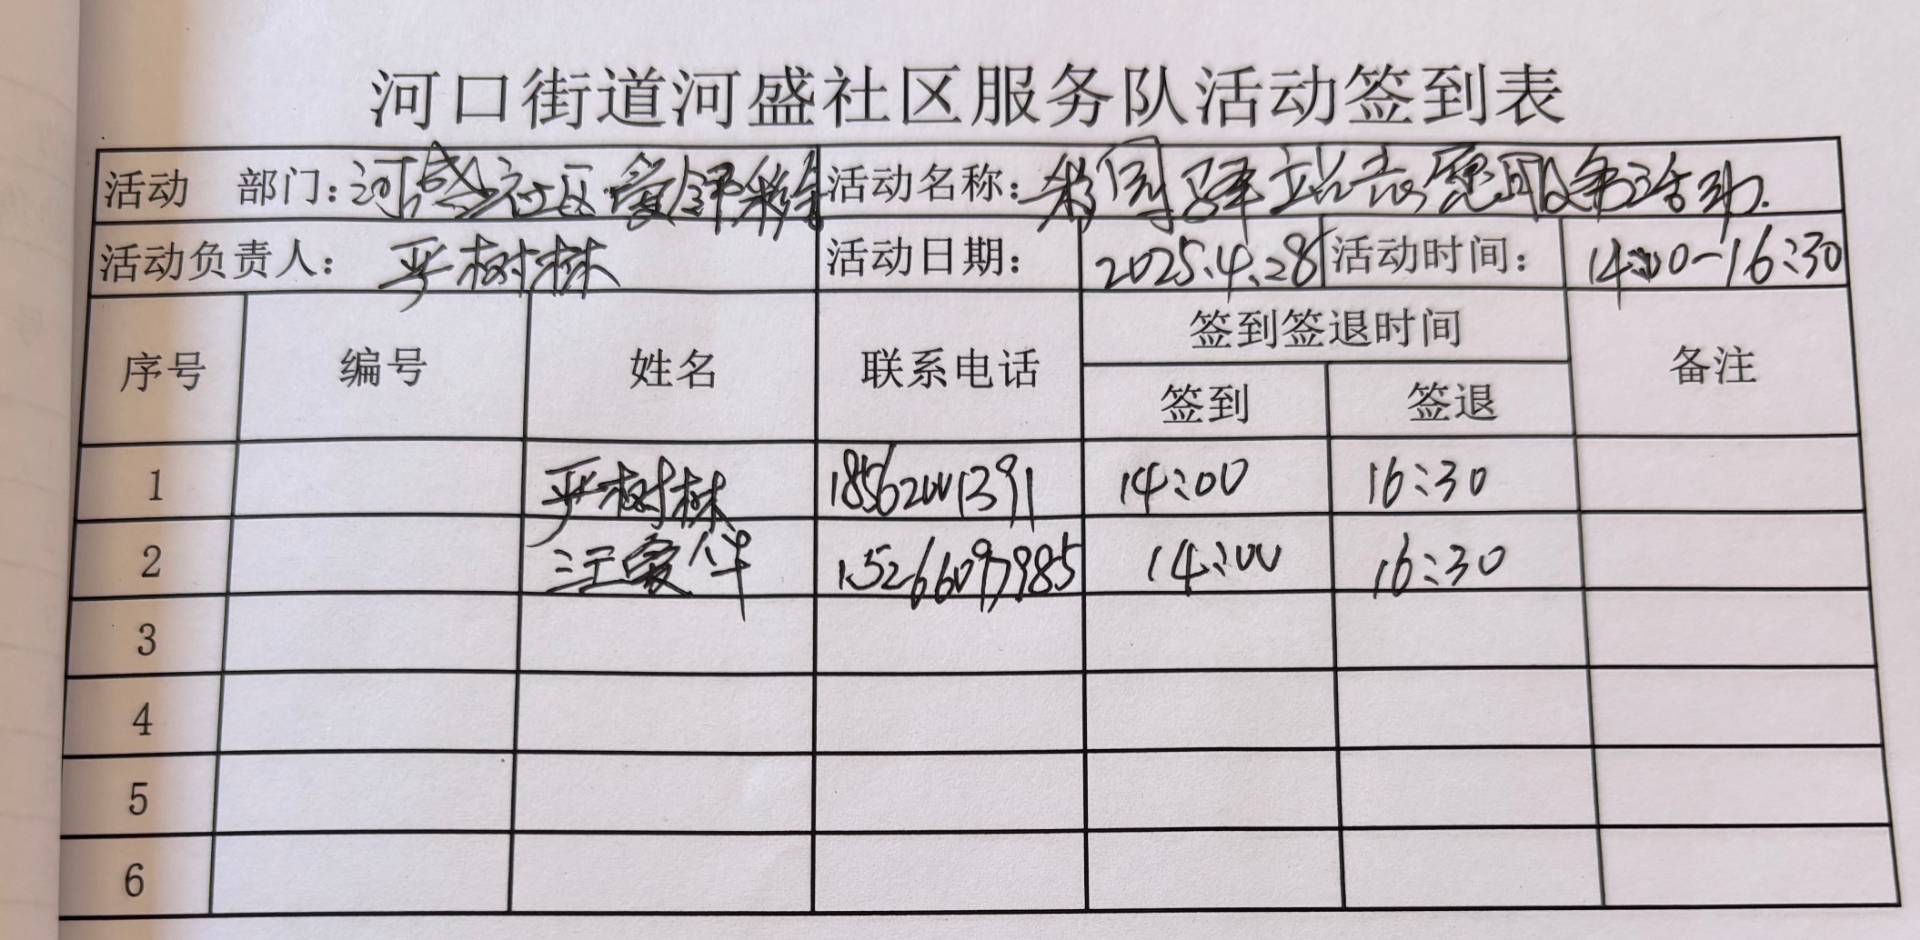 河口街道河盛社区服务队活动签到表
活动 部门：河盛社区
活动名称：驿站志愿服务活动.
活动负责人：严树林 活动日期：2025.4.28 活动时间：14:00-16:30
序号 编号 姓名 联系电话 签到签退时间 备注
签到 签退
1 严树林 18562001391 14:00 16:30
2 汪爱华 15266097985 14:00 16:30
3
4
5
6